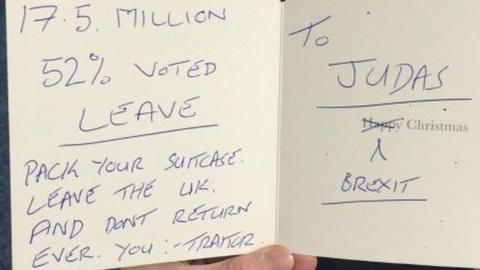 17.5. MILLION
52% VOTED
LEAVE
PACK YOUR SUITCASE.
LEAVE THE UK.
AND DONT RETURN
EVER. YOU :- TRAITOR.
To
JUDAS
Happy Christmas
BREXIT